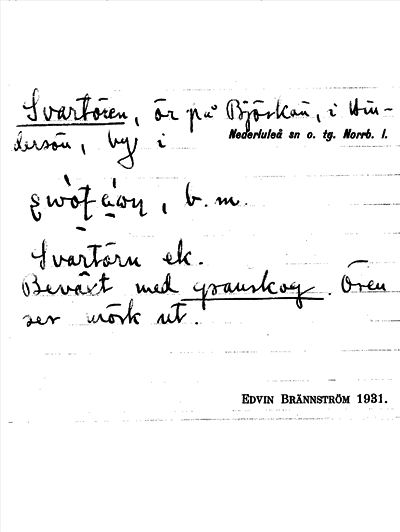 Svartören, ör på Björkön, i Hin-
dersön, by i Nederluleå sn o. tg. Norrb. l.
b. m.
Svartörn ek.
Beväxt med granskog. Ören
ser mörk ut.
EDVIN BRÄNNSTRÖM 1931.